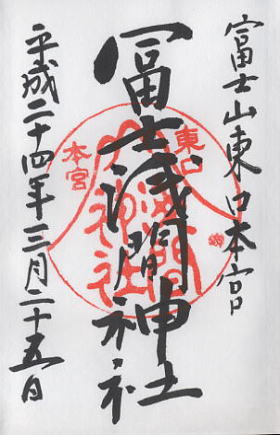 富士山東口本宮
冨士浅間神社
平成二十四年三月二十五日
東口
本宮